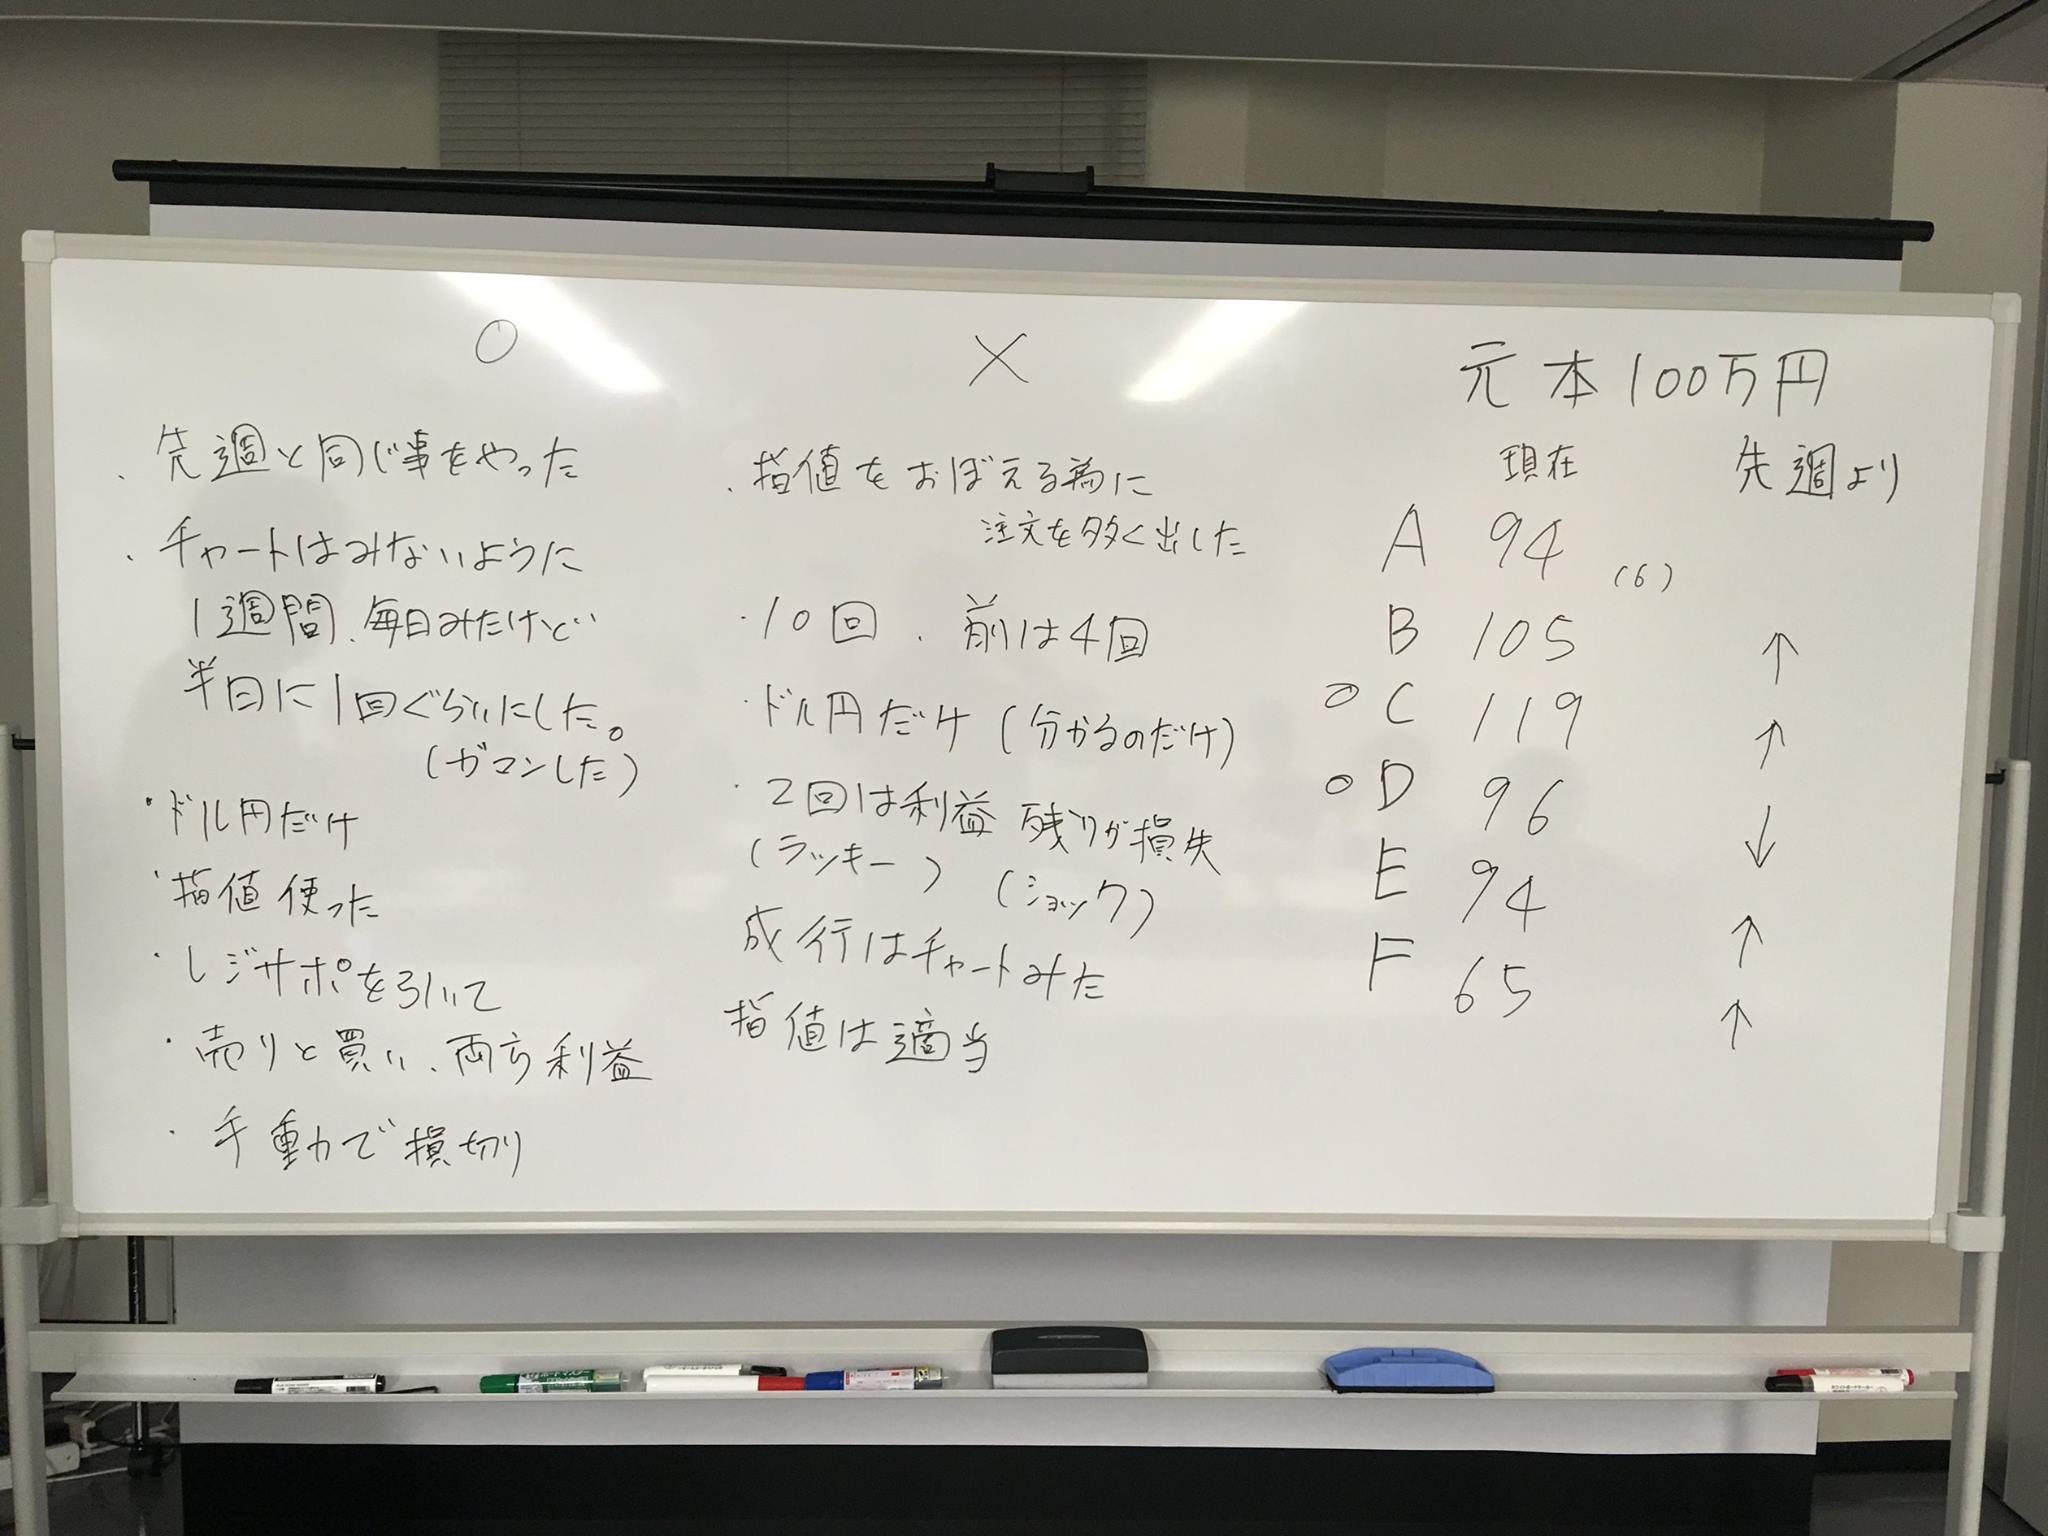 ○
・先週と同じ事をやった
・チャートはみないように
1週間、毎日みたけど
半日に1回ぐらいにした。
(ガマンした)
・ドル円だけ
・指値使った
・レジサポを引いて
・売りと買い、両方利益
・手動で損切り
×
・指値をおぼえる為に
注文を多く出した
・10回、前は4回
・ドル円だけ(分かるのだけ)
・2回は利益 残りが損失
(ラッキー) (ショック)
成行はチャートみた
指値は適当
元本100万円
現在 先週より
A 94 (6)
B 105 ↑
○ C 119 ↑
○ D 96 ↓
E 94 ↑
F 65 ↑